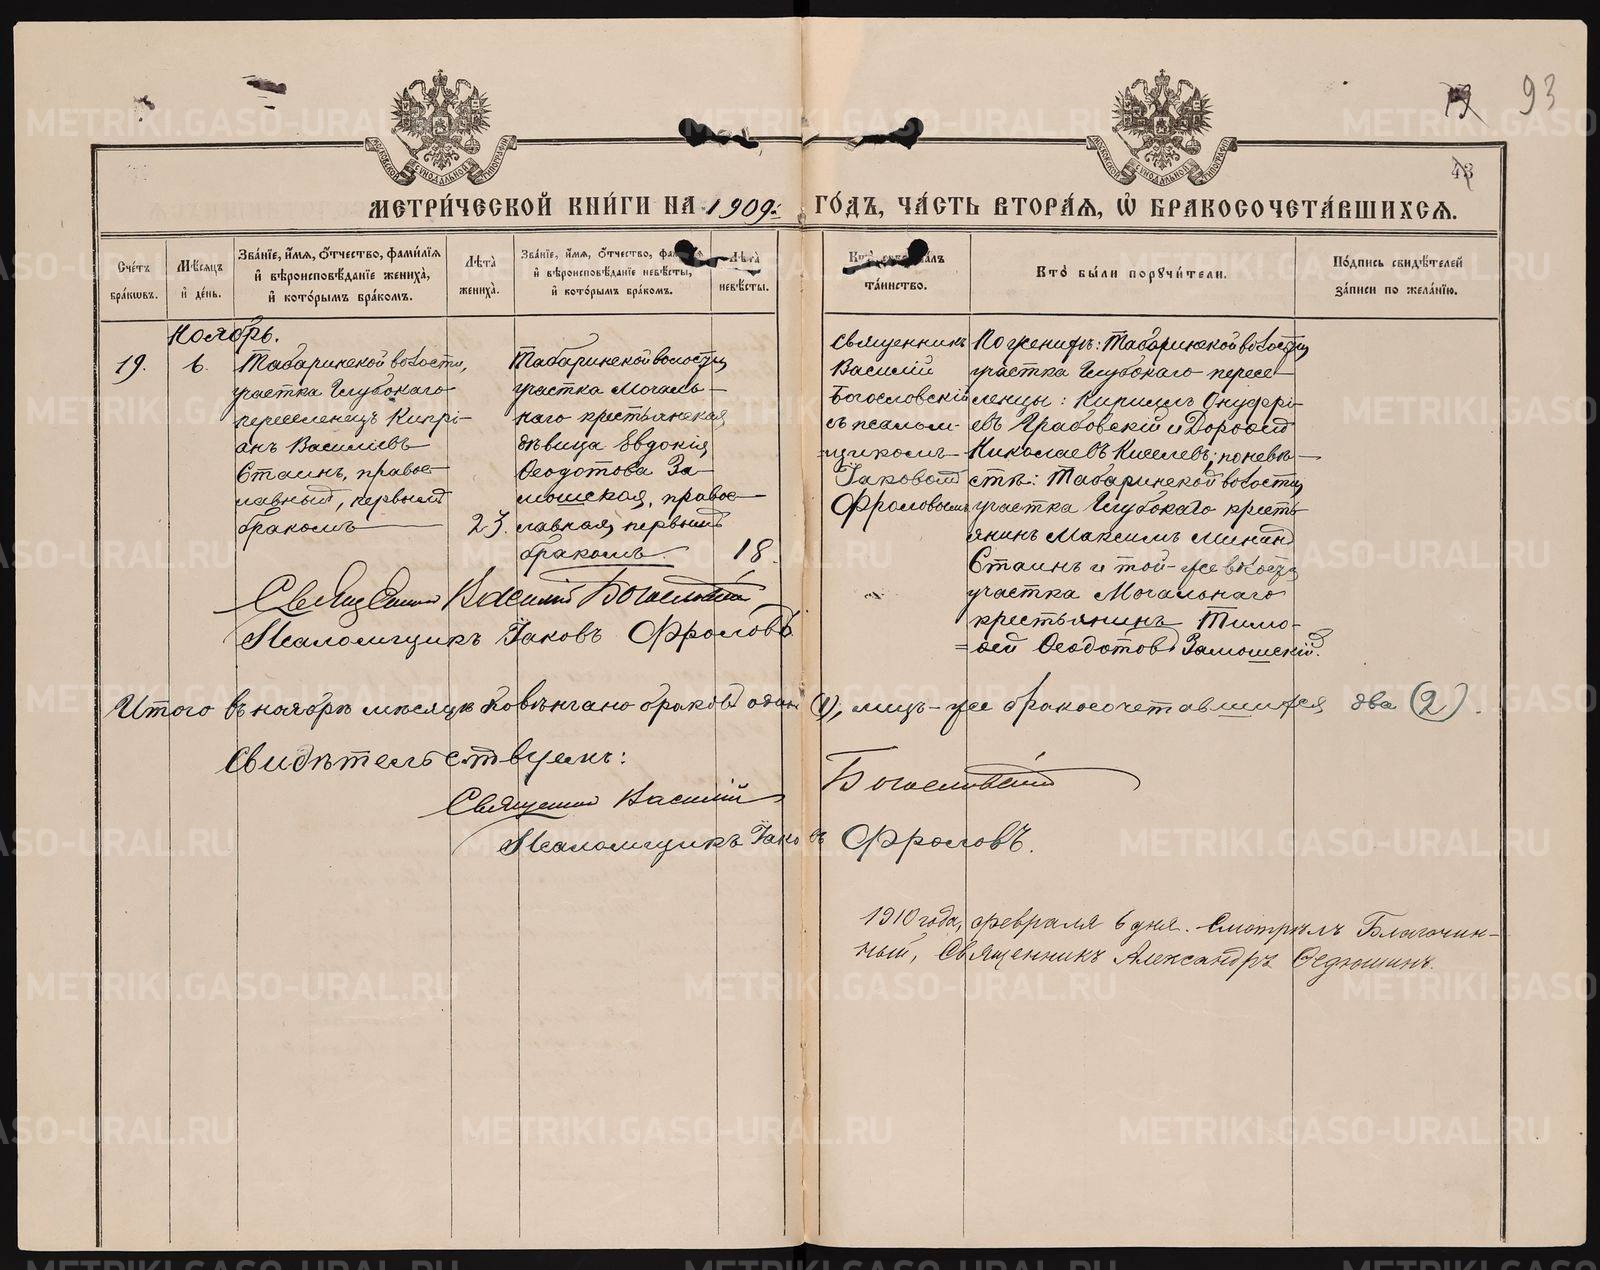 93
43
МОСКОВСКОЙ СѴНОДАЛЬНОЙ ТИПОГРАФІИ
МОСКОВСКОЙ СѴНОДАЛЬНОЙ ТИПОГРАФІИ
МЕТРИ́ЧЕСКОЙ КНИ́ГИ НА 1909. ГО́ДЪ, ЧА́СТЬ ВТОРА́Я, Ѽ БРАКОСОЧЕТА́ВШИХСЯ.
Сче́тъ бра́кѡвъ.
Мѣ́сяцъ и҆ де́нь.
Зва́нїе, и҆́мя, ѻ҆́тчество, фами́лїя и҆ вѣроисповѣ́данїе жениха̀, и҆ кото́рымъ бра́комъ.
Лѣ́та жениха̀.
Зва́нїе, и҆́мя, ѻ҆́тчество, фами́лїя и҆ вѣроисповѣ́данїе невѣ́сты, и҆ кото́рымъ бра́комъ.
Лѣ́та невѣ́сты.
Кто̀ соверша́лъ та́инство.
Кто̀ бы́ли порꙋчи́тели.
По́дпись свидѣ́телей за́писи по жела́нїю.
Ноябрь.
19.
6.
Табаринской волости,
участка Глубокаго
переселенецъ Кипрі-
анъ Василіевъ
Стаинъ, правос-
лавный, первымъ
бракомъ
23.
Табаринской волости,
участка Мочаль-
наго крестьянская
дѣвица Евдокія
Ѳеодотова За-
мошская, правос-
лавная, первымъ
бракомъ.
18.
Священникъ
Василій
Богословскій
съ псалом-
щикомъ
Іаковомъ
Фроловымъ
По женихѣ: Табаринской волости,
участка Глубокаго пересе-
ленцы: Кириллъ Онуфрі-
евъ Грабовскій и Дороѳей
Николаевъ Киселевъ; по невѣ-
стѣ: Табаринской волости,
участка Глубокаго кресть-
янинъ Максимъ Минаевъ
Стаинъ и той-же волости,
участка Мочальнаго
крестьянинъ Тимо-
ѳей Ѳеодотовъ Замошскій.
Священникъ Василій Богословскій
Псаломщикъ Іаковъ Фроловъ
Итого въ ноябрѣ мѣсяцѣ повѣнчано браковъ одинъ (1), лицъ-же бракосочетавшихся два (2).
Свидѣтельствуемъ:
Священникъ Василій Богословскій
Псаломщикъ Іаковъ Фроловъ.
1910 года, февраля 6 дня. Смотрѣлъ Благочин-
ный, Священникъ Александръ Ѳедюшинъ.
METRIKI.GASO-URAL.RU